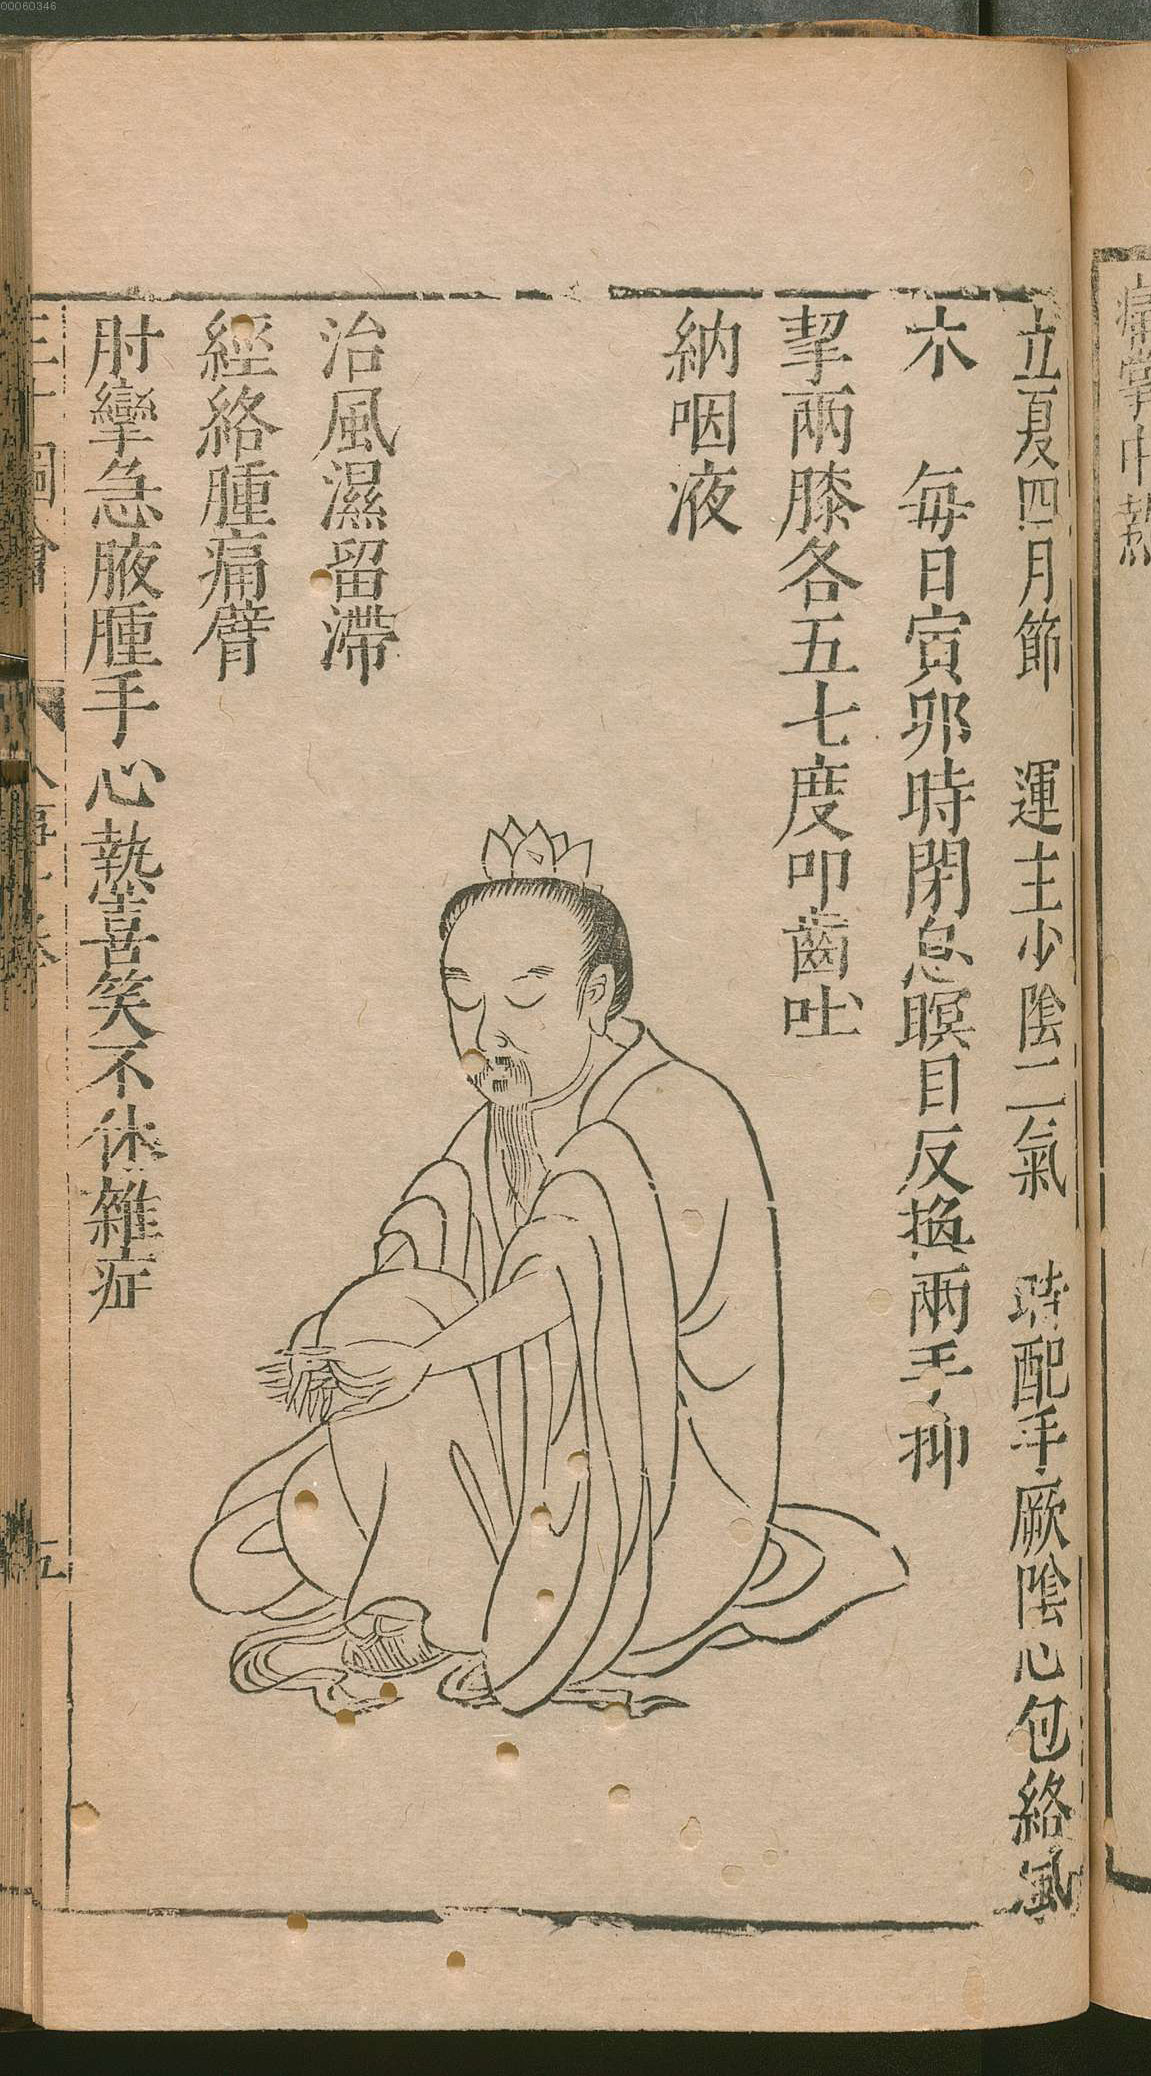 立夏四月節　運主少陰二氣　時配手厥陰心包絡風
木　每日寅卯時閉息瞑目反換兩手抑
掣兩膝各五七度叩齒吐
納咽液
治風濕留滯
經絡腫痛臂
肘攣急腋腫手心熱喜笑不休雜症
五
00060346